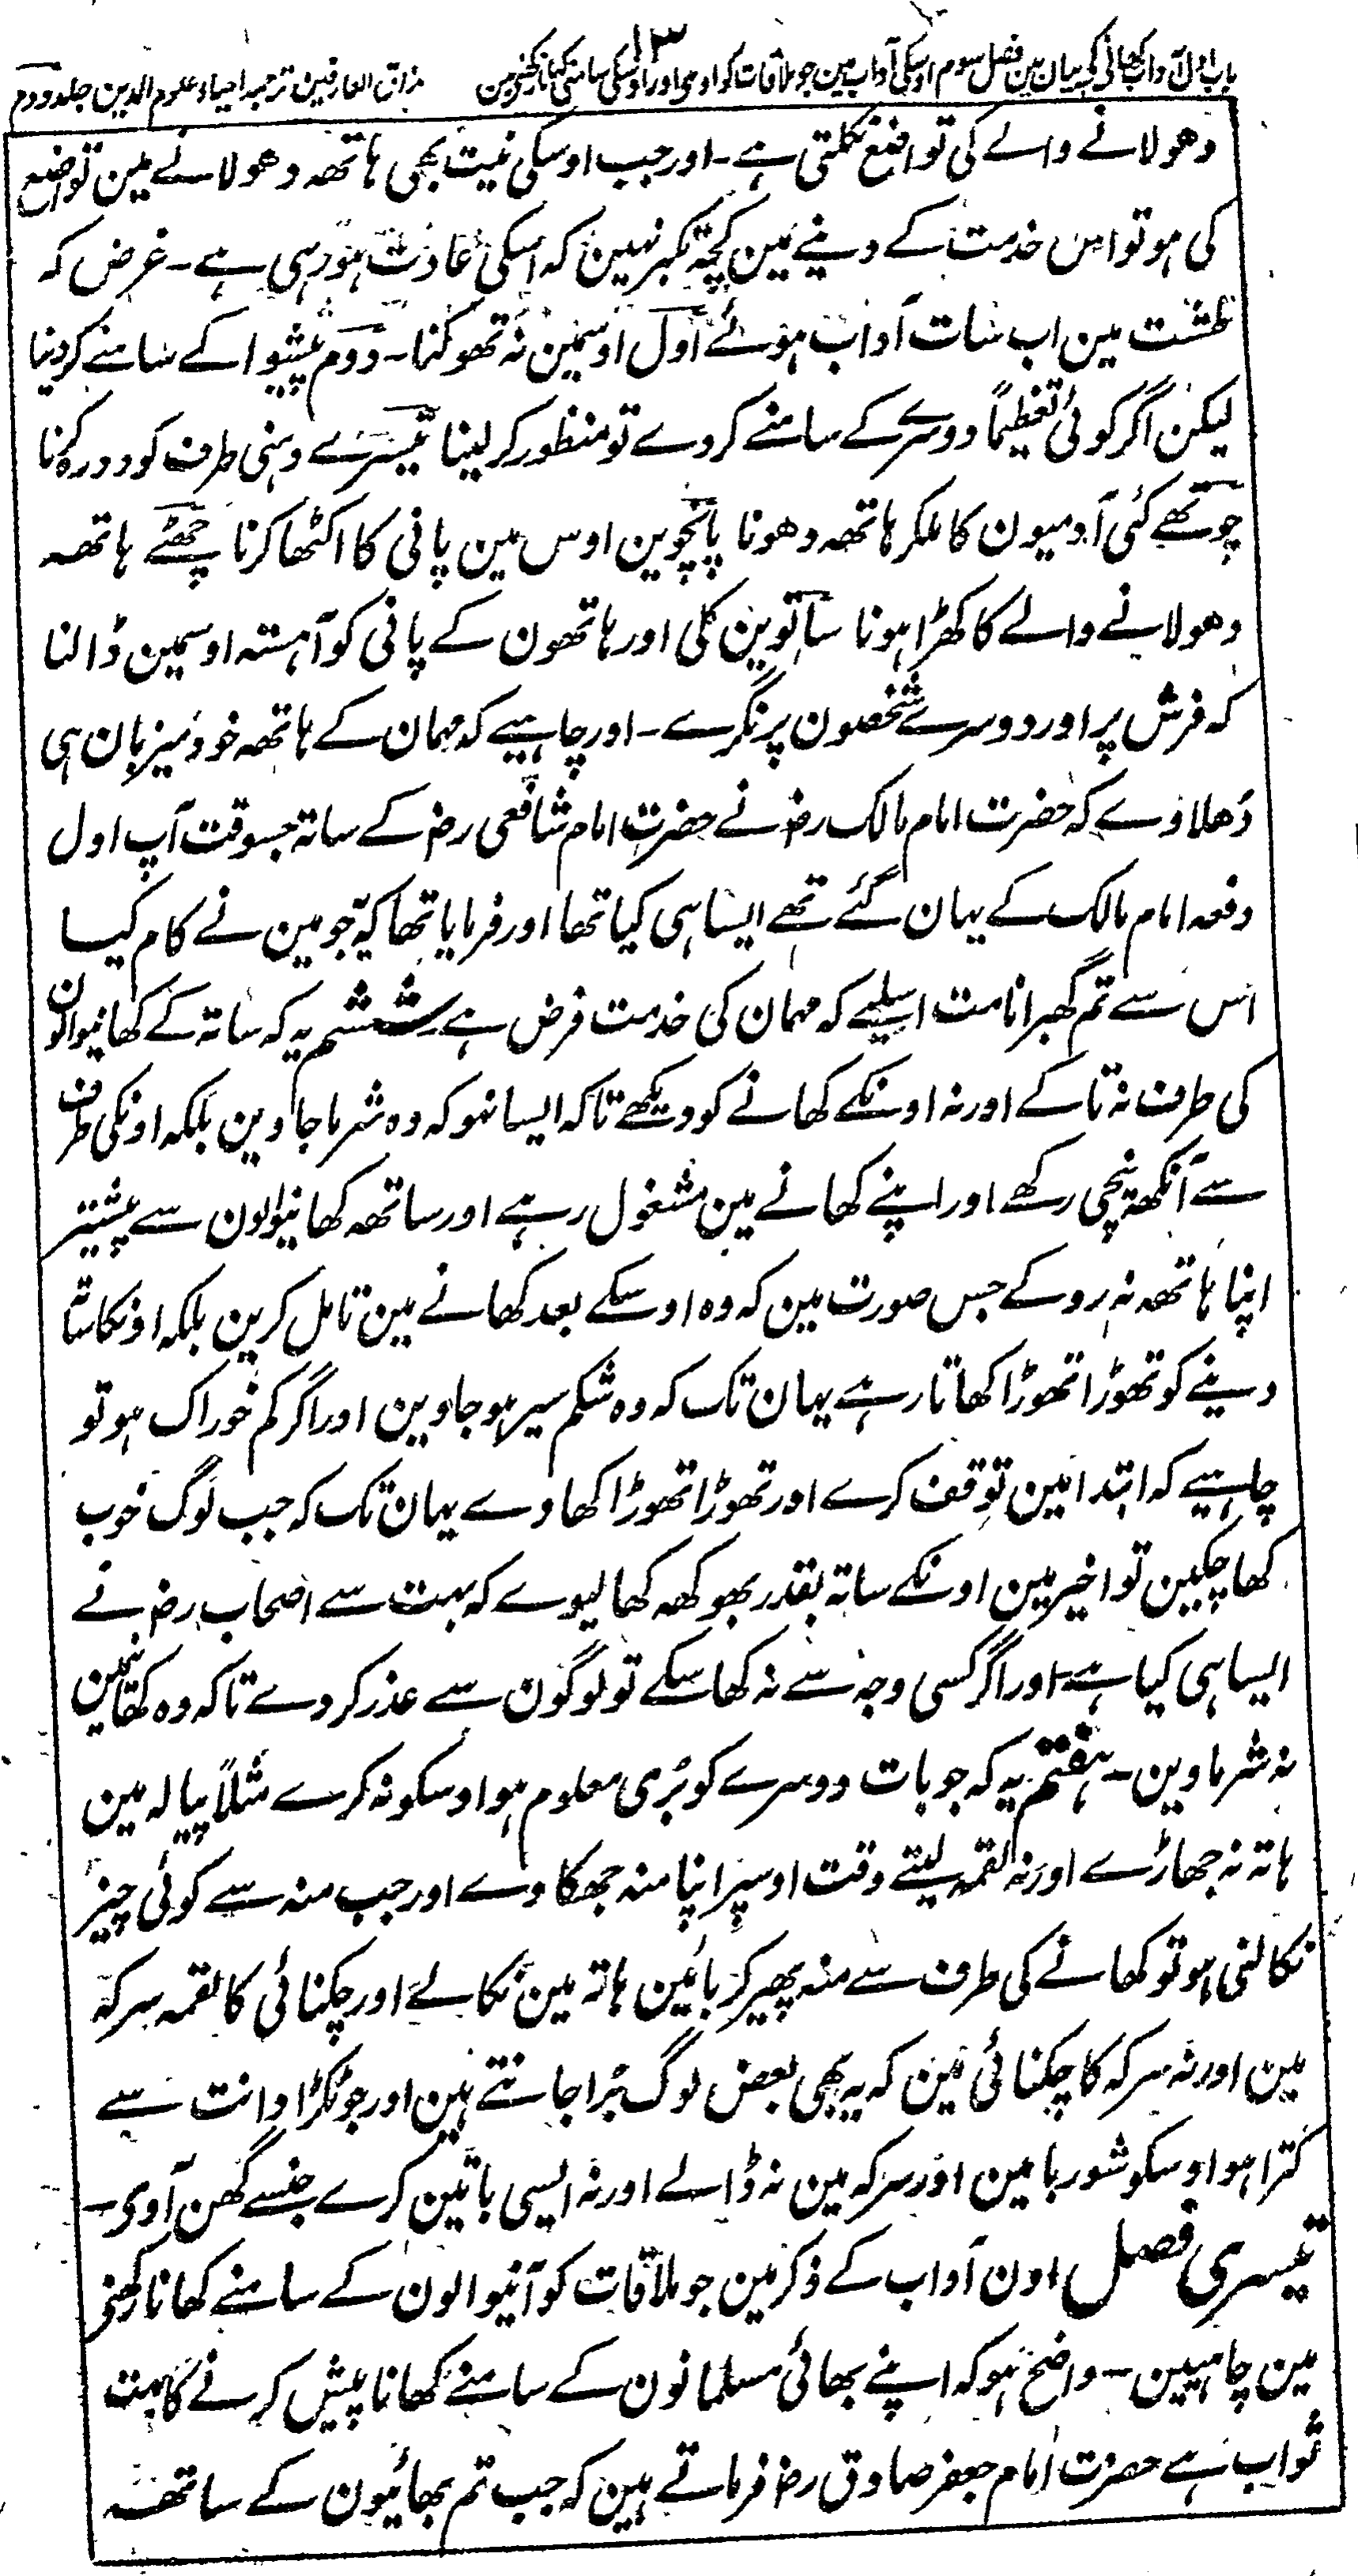 ۱۳
باب اول آداب کھانے کے بیان مین فصل سوم اوسکی آداب مین جو ملاقات کو آوی اور اوسکی سامنی کھانا رکھنی مین
مذاق العارفین ترجمہ احیاء علوم الدین جلد دوم
دھولانے والے کی تواضع نکلتی ہے۔ اور جب اوسکی نیت بھی ہاتھہ دھولانے مین تواضع
کی ہو تو اس خدمت کے دینے مین کچھہ تکبر نہین کہ اسکی عادت ہو رہی ہے۔ غرض کہ
طشت مین اب سات آداب ہوئے اول اوسمین نہ تھوکنا۔ دوم پیشوا کے سامنے کر دینا
لیکن اگر کوئی تعظیماً دوسرے کے سامنے کر دے تو منظور کر لینا تیسرے دہنی طرف کو دورہ کرنا
چوتھے کئی آدمیون کا ملکر ہاتھہ دھونا پانچوین اوس مین پانی کا اکٹھا کرنا چھٹے ہاتھہ
دھولانے والے کا کھڑا ہونا ساتوین کلی اور ہاتھون کے پانی کو آہستہ اوسمین ڈالنا
کہ فرش پر اور دوسرے شخصون پر نگرے۔ اور چاہیے کہ مہمان کے ہاتھہ خود میزبان ہی
دھلاوے کہ حضرت امام مالک رض نے حضرت امام شافعی رض کے ساتھ جسوقت آپ اول
دفعہ امام مالک کے یہان گئے تھے ایسا ہی کیا تھا اور فرمایا تھا کہ جو مین نے کام کیا
اس سے تم گھبرانا مت اسلیے کہ مہمان کی خدمت فرض ہے ششم یہ کہ ساتھ کے کھانیوالون
کی طرف نہ تاکے اور نہ اونکے کھانے کو دیکھے تاکہ ایسا نہو کہ وہ شرما جاوین بلکہ اونکی طرف
سے آنکھہ نیچی رکھے اور اپنے کھانے مین مشغول رہے اور ساتھہ کھانیوالون سے پیشتر
اپنا ہاتھہ نہ روکے جس صورت مین کہ وہ اوسکے بعد کھانے مین تامل کرین بلکہ اونکا ساتھ
دینے کو تھوڑا تھوڑا کھاتا رہے یہان تک کہ وہ شکم سیر ہو جاوین اور اگر کم خوراک ہو تو
چاہیے کہ ابتدا مین توقف کرے اور تھوڑا تھوڑا کھاوے یہان تک کہ جب لوگ خوب
کھا چکین تو اخیر مین اونکے ساتھ بقدر بھوکھہ کھا لیوے کہ بہت سے اصحاب رض نے
ایسا ہی کیا ہے اور اگر کسی وجہ سے نہ کھا سکے تو لوگون سے عذر کر دے تاکہ وہ کھانیمین
نہ شرماوین۔ ہفتم یہ کہ جو بات دوسرے کو بُری معلوم ہو اوسکو نہ کرے مثلاً پیالہ مین
ہاتھ نہ جھاڑے اور نہ لقمہ لیتے وقت اوسپر اپنا منہ جھکاوے اور جب منہ سے کوئی چیز
نکالنی ہو تو کھانے کی طرف سے منہ پھیر کر بائین ہاتھ مین نکالے اور چکنائی کا لقمہ سرکہ
مین اور نہ سرکہ کا چکنائی مین کہ یہ بھی بعض لوگ بُرا جانتے ہین اور جو ٹکڑا دانت سے
کترا ہو اوسکو شوربا مین اور سرکہ مین نہ ڈالے اور نہ ایسی باتین کرے جنسے گھن آوی۔
تیسری فصل اون آداب کے ذکر مین جو ملاقات کو آنیوالون کے سامنے کھانا رکھنی
مین چاہیین۔ واضح ہو کہ اپنے بھائی مسلمانون کے سامنے کھانا پیش کرنے کا بہت
ثواب ہے حضرت امام جعفر صادق رض فرماتے ہین کہ جب تم بھائیون کے ساتھہ